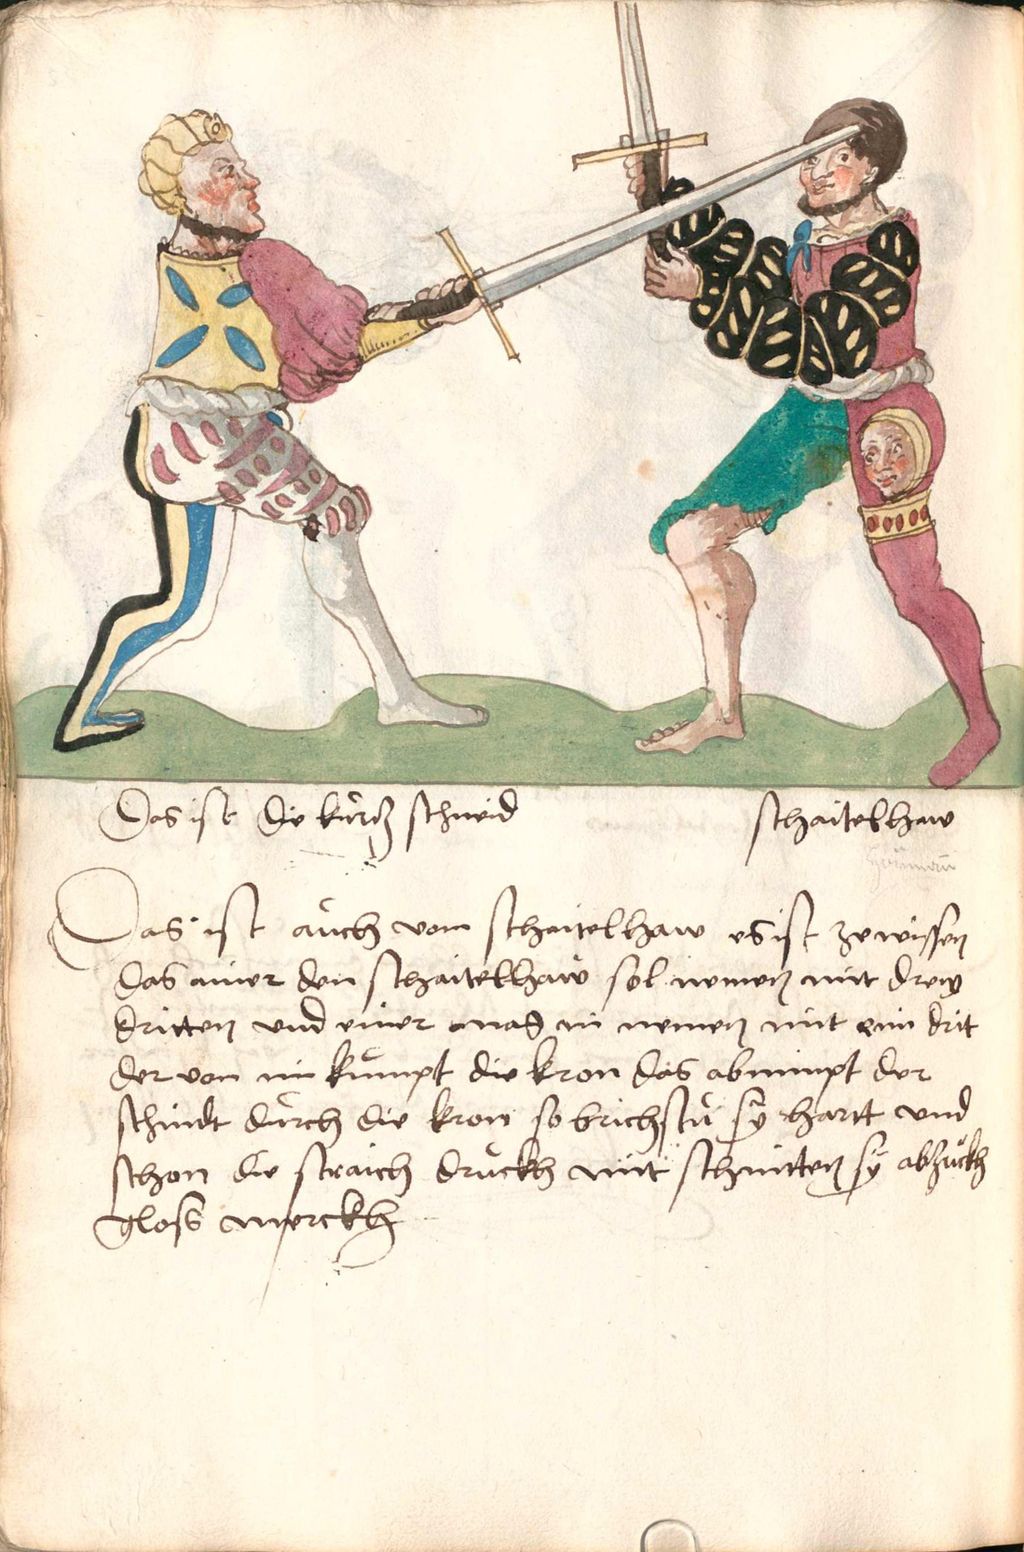 Das ist die kürtz schneid
schaitelhaw
Das ist aůch vom schaitelhaw es ist zewissen
das ainer den schaitelhaw sol nemen mit drey
dritten vnd einer mag in nemen mit eim drit
der von im kumpt die kron das abnimpt der
schindt důrch die kron so brichstů sy hartt vnd
schon die straich drůckh mit schnitten sy abzůckh
gloss merckh